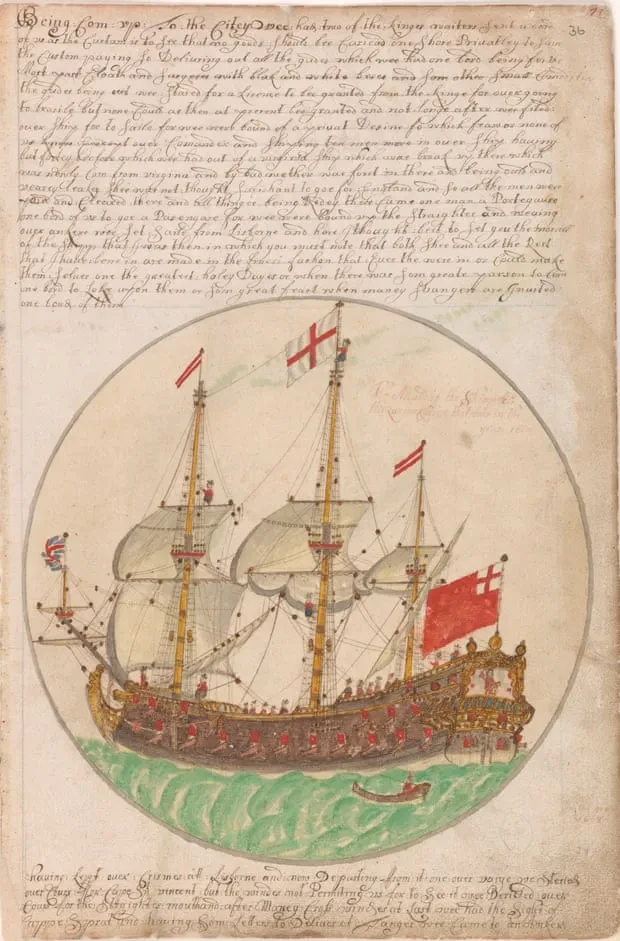 36
Being Com up to the Citey wee had two of the Kinges waiters sent a bord
of us as the Custam is to see that no goods should bee Caried one shore Privatley to save
the Custom paying so Delivering out all the gudes which wee had one bord being for the
Most part Cloath and sarges with blak and white beses and som other small
the gudes being out wee staied for a Licence to bee granted from the Kenge for ouer going
to brasile but none Could as then at present bee granted and not long after wee fited
ouer ship for to saile for wee were bound of a privat Desine to which few or none of
us ouer Comander and shiping ten men more in ouer ship having
but before which wee had out of a virginia ship which was break up there which
was newly Com from virgina and by bad wether was forst in there and being ould and
very leakey shee was not thought sufichant to goe for England and so all the men were
and Cleared there and all thinges being Redey there Came one man a Portegause
one bord of us to goe a Pasengare for wee were bound up the straightes and waying
ouer anker wee set saile from Lisborne and here I thought best to let you the maner
of the ship that I was then in which you must note that both shee and all the Rest
that I have bene in are made in the fashon that ever the were in or Could make
them selves one the greatest holey Dayes or when there was som greate parson to Com
one bord to loke upon them or som great feast when maney strangers are Invited
one bord of them
The of the ship
the in the
year
having Left ouer at Lisborne and now Departing from it one ouer vaige we stered
ouer Cors for Cape St vincent but the windes not Permiting us for to see it wee Derected ouer
Course for the straightes mouth and after Maney Cros windes at last wee had the sight of
Cappe Sprat and having som Letters to Deliver at Tanger wee Came to an anker